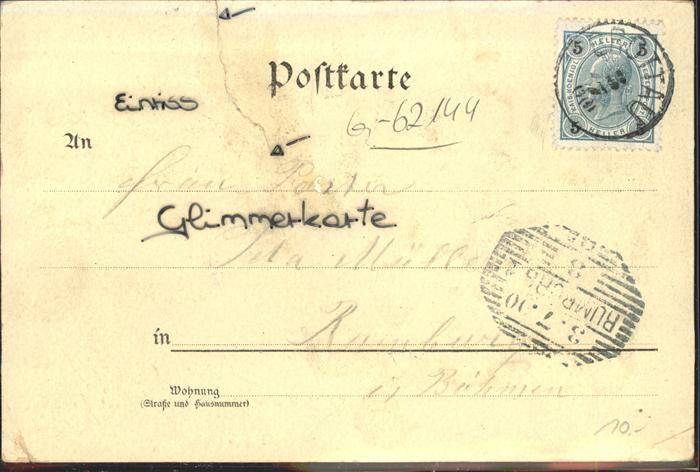 Postkarte
Einriss
G-62144
An
Frau
Glimmerkarte
Ida Müller
in Rumburg
in Böhmen
Wohnung
(Straße und Hausnummer)
5 HELLER 5
5 HELLER 5
RUMBURG
3.7.00
8
10.-